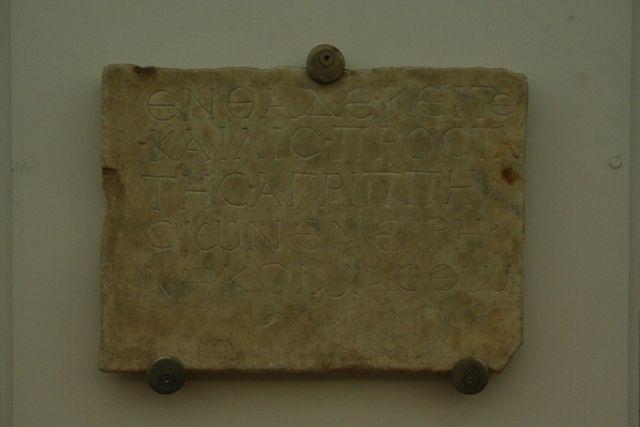 ΕΝΘΑΔΕ·ΚΕΙΤΕ
·ΚΑΙΛΙϹ·ΠΡΟϹΤΑ
ΤΗϹ·ΑΓΡΙΠΠΗ
ϹΙωΝ ΕΝ ΕΙΡΗ·
ΝΗ ΚΟΙΜΑϹΘω